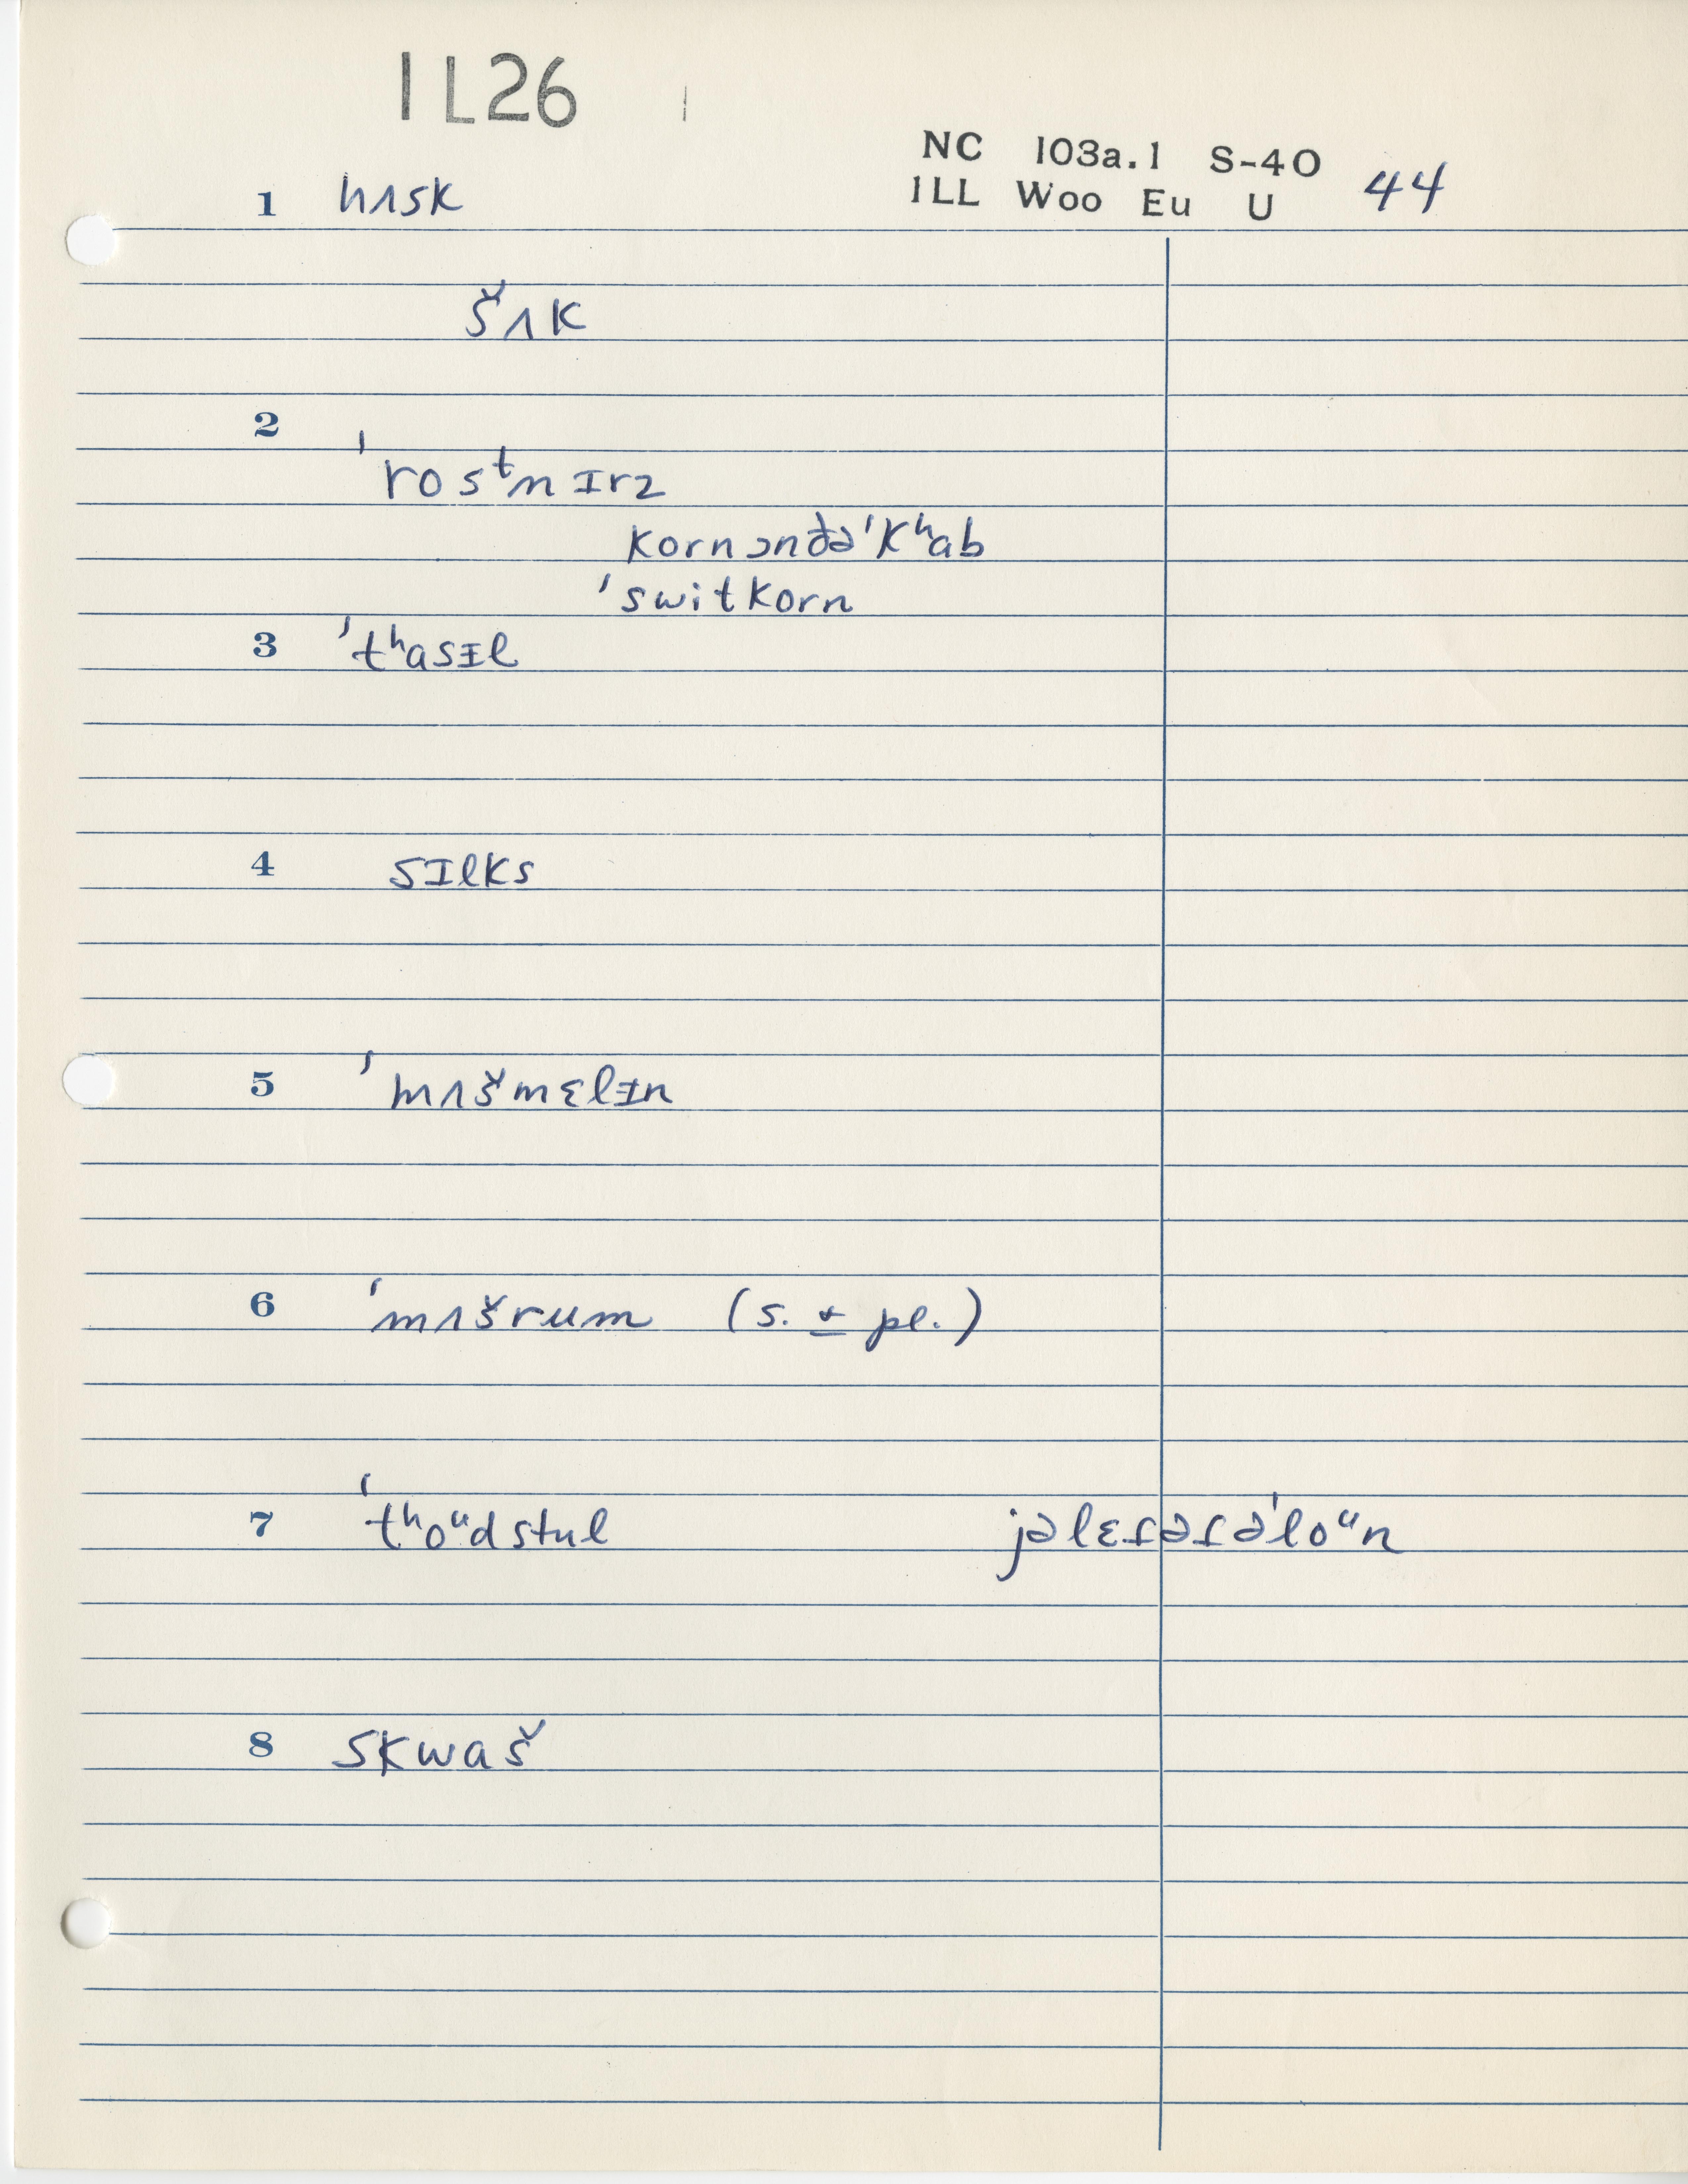 IL26
NC 103a.1 S-40
ILL Woo Eu U 44
1 hʌsk
šʌk
2 ˈrosᵗnɪrz
kornɔnðəˈkʰab
ˈswitkorn
3 ˈtʰasɪl
4 sɪlks
5 ˈmʌšmɛlɪn
6 ˈmʌšrum (s. & pl.)
7 ˈtʰoᵘdstul jəlɛɾəɾəˈloᵘn
8 skwaš